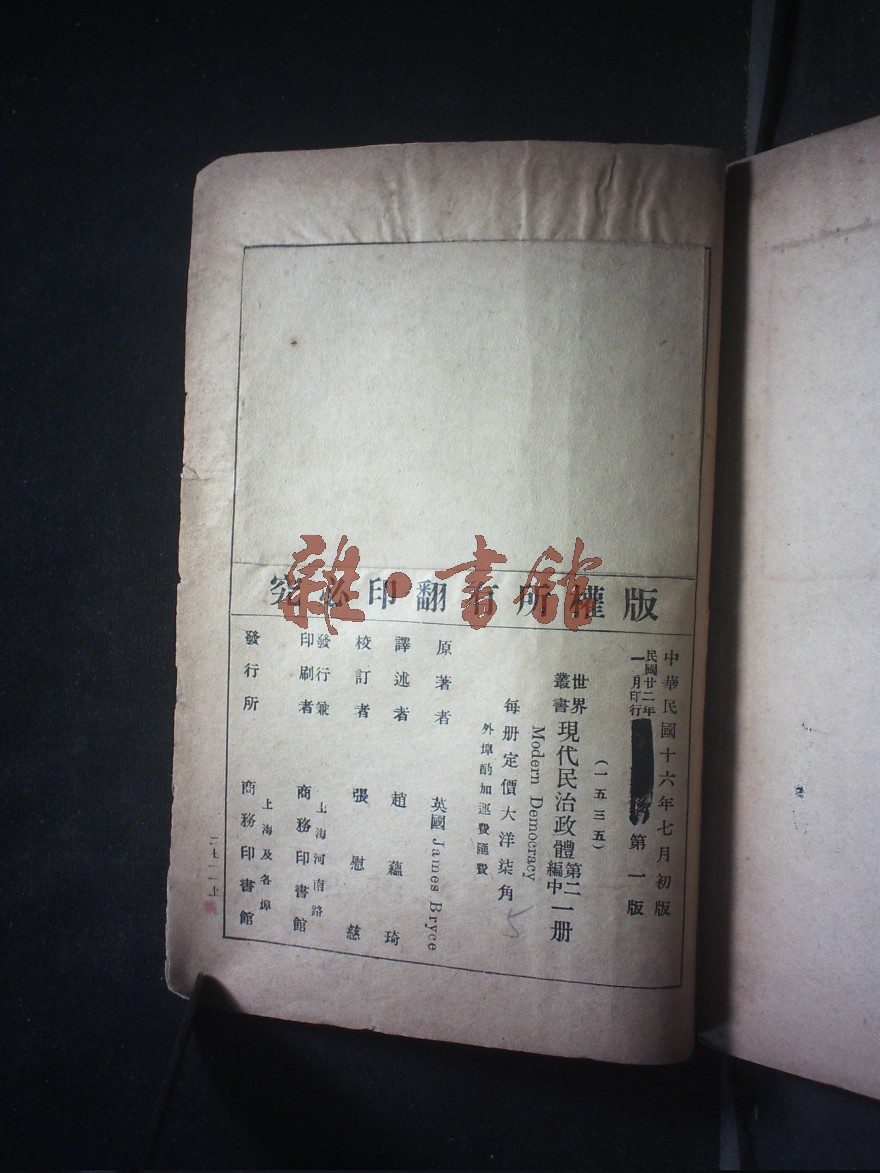 版權所有翻印必究
中華民國十六年七月初版
民國廿二年
一月印行
第一版
(一五三五)
世界
叢書
現代民治政體
第二
編中
一册
Modern Democracy
每册定價大洋柒角
外埠酌加運費匯費
原著者 英國 James Bryce
譯述者 趙蘊琦
校訂者 張慰慈
發行兼
印刷者
上海河南路
商務印書館
發行所
上海及各埠
商務印書館
雜·書館
5